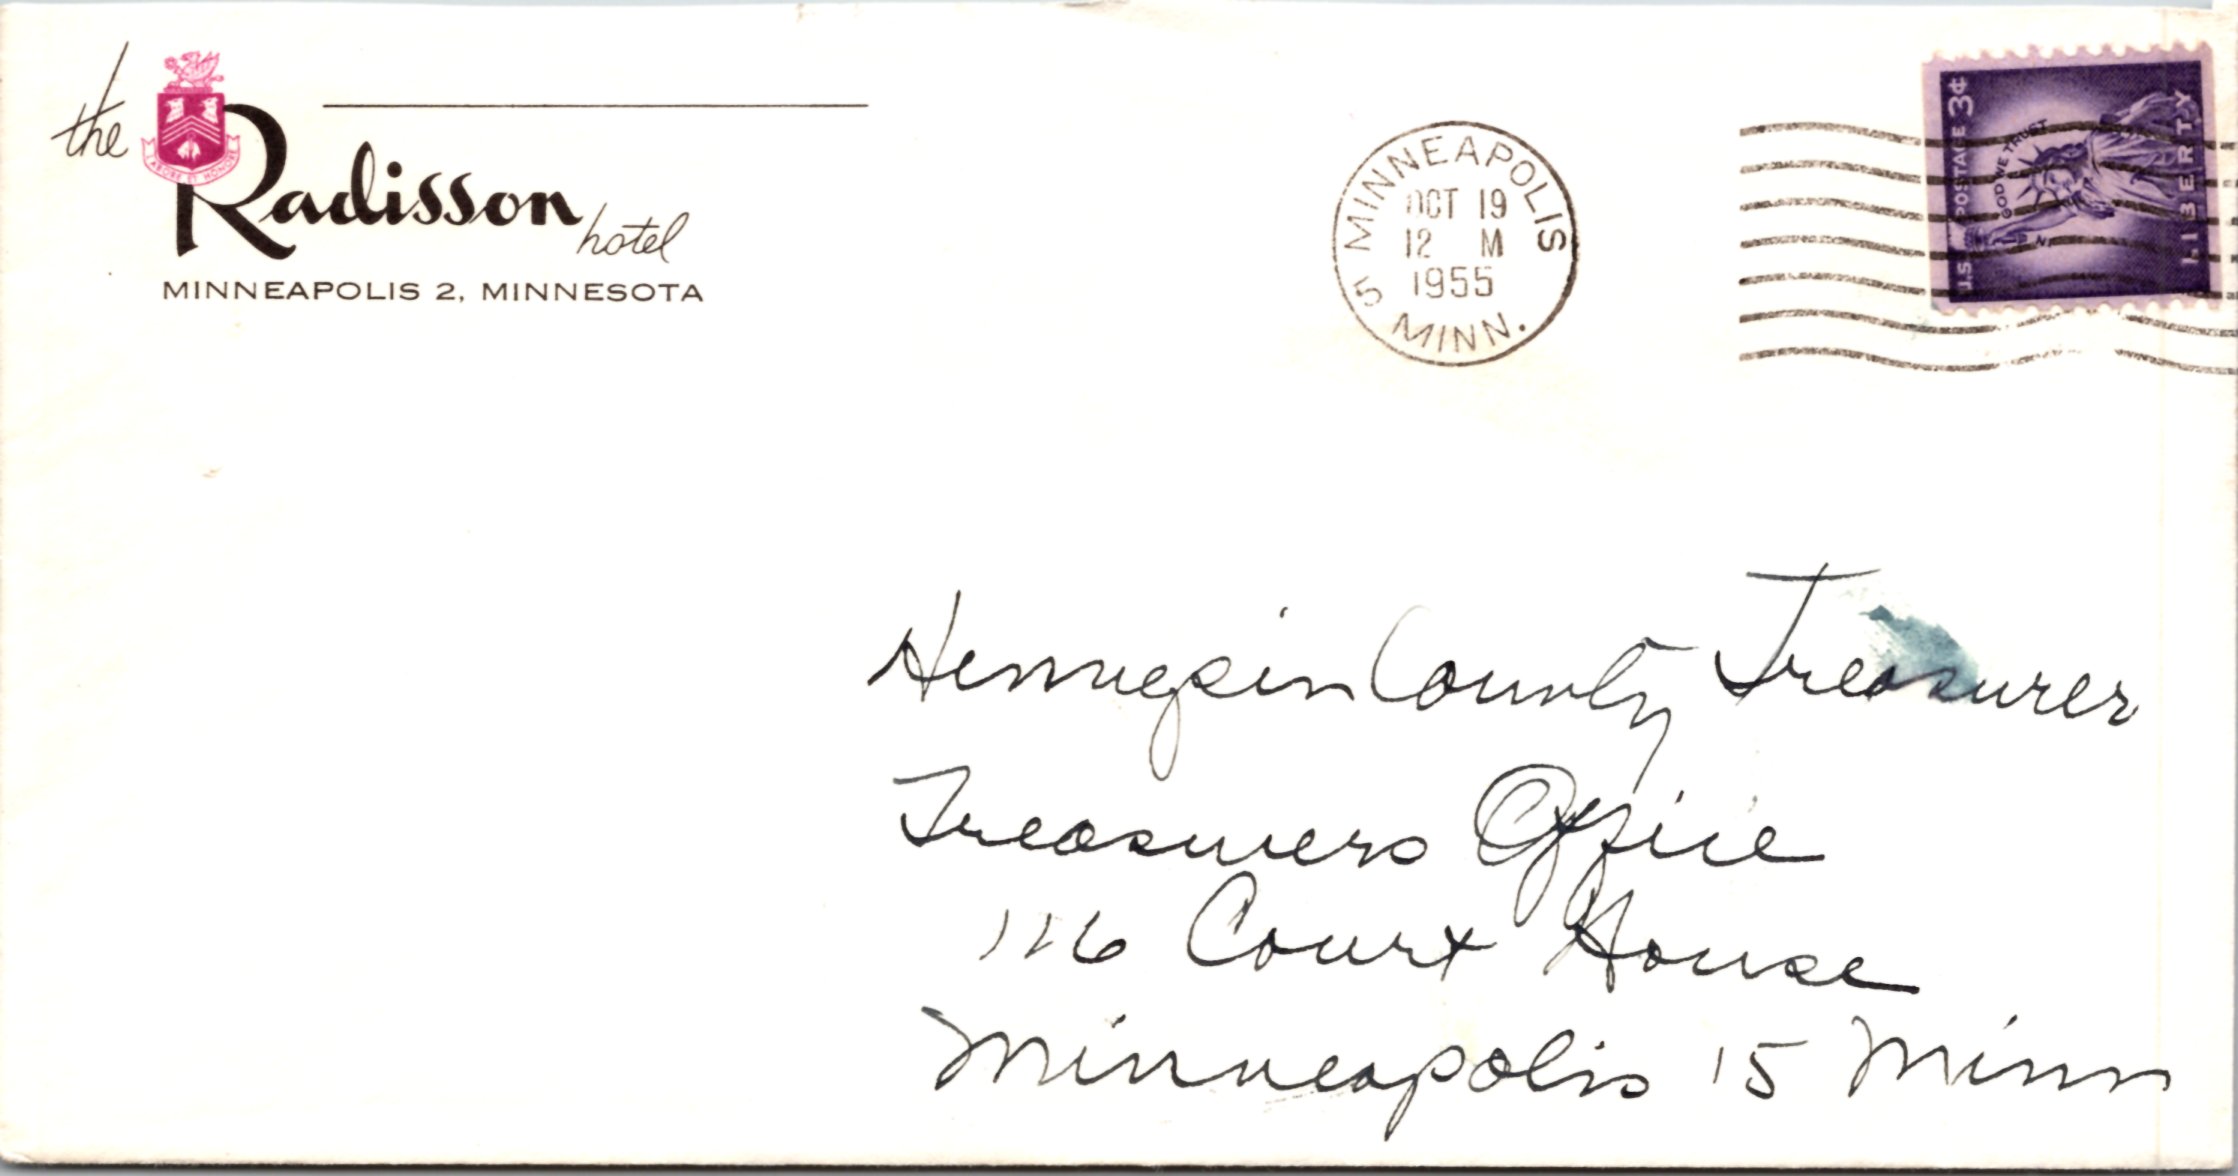 the Radisson hotel
LABORE ET HONORE
MINNEAPOLIS 2, MINNESOTA
MINNEAPOLIS
OCT 19
12 M
1955
5
MINN.
U.S. POSTAGE 3¢
IN GOD WE TRUST
LIBERTY
Hennepin County Treasurer
Treasurers Office
116 Court House
Minneapolis 15 Minn